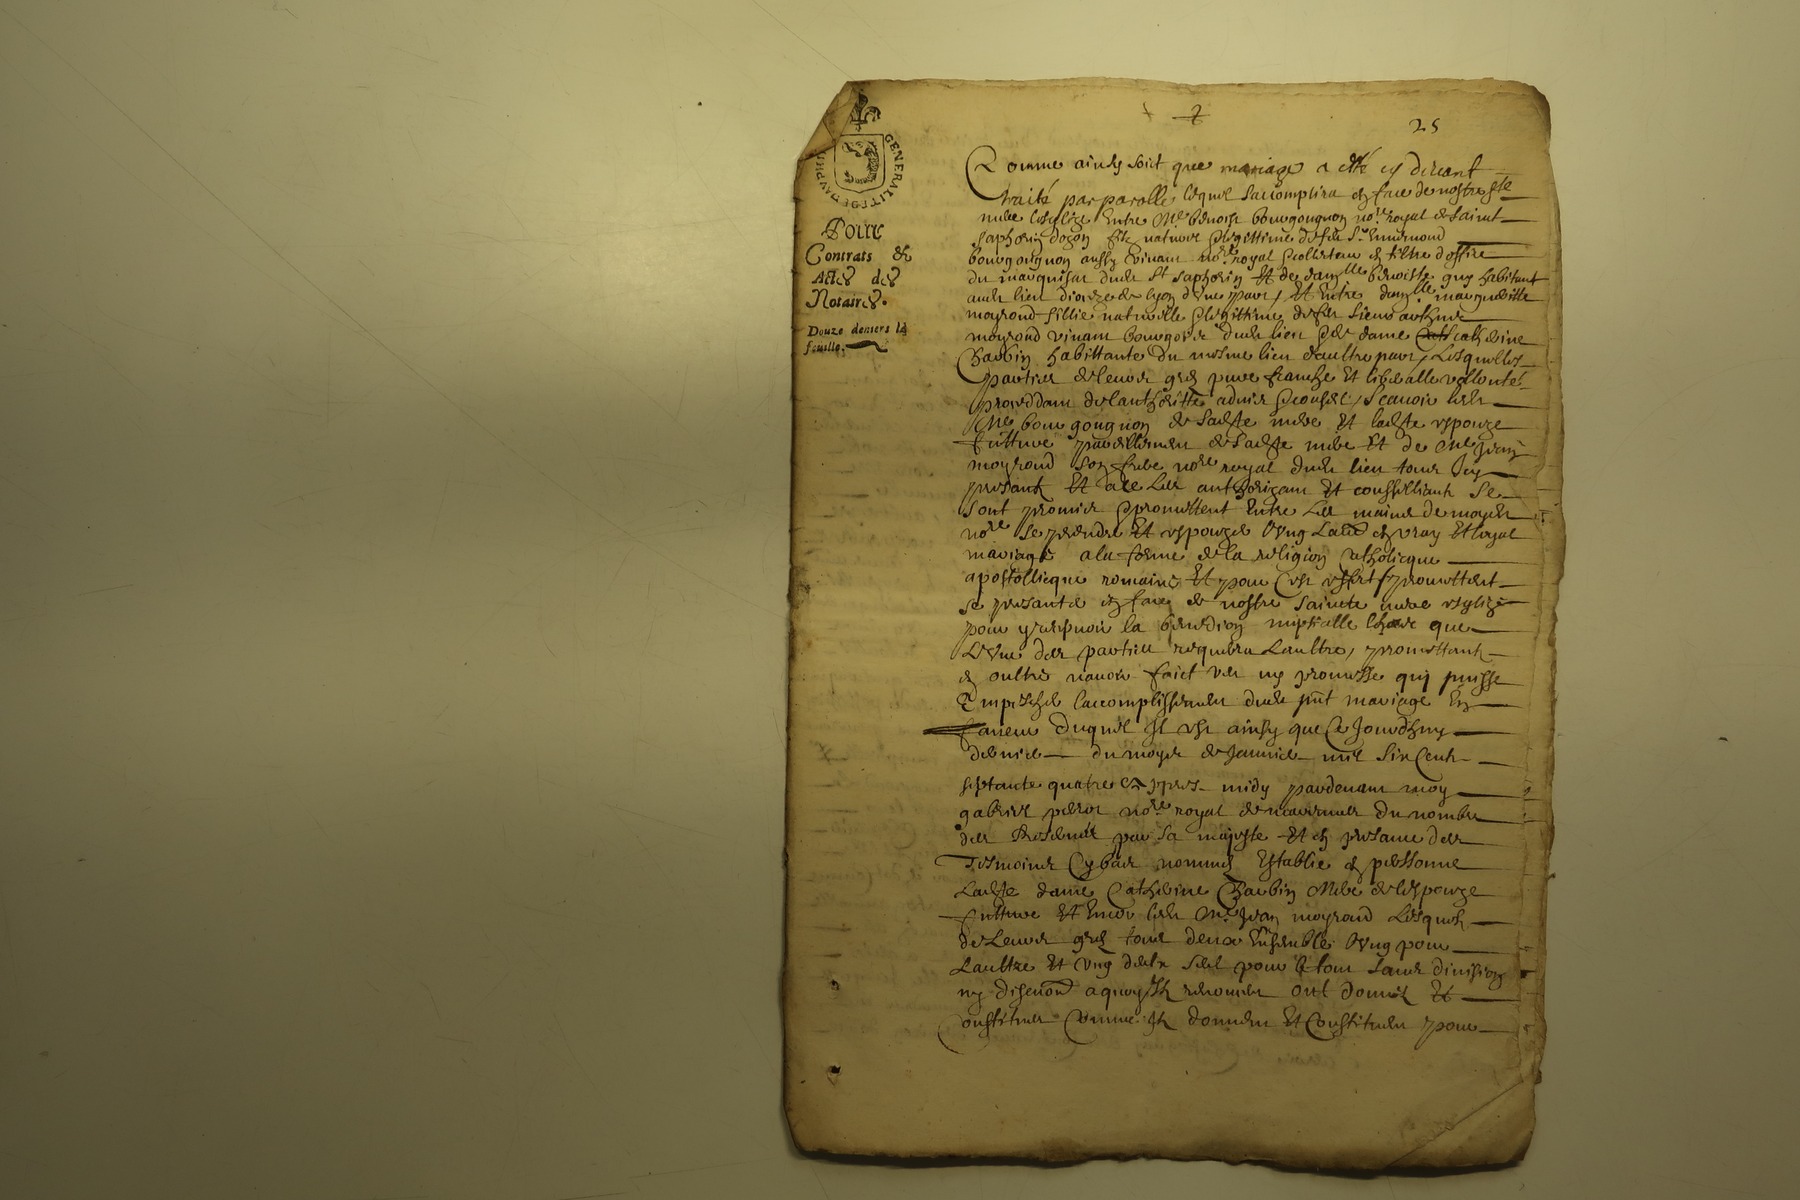 25
GENERALITE DE DAUPHI
Pour
Contrats &
Actes des
Notaires.
Douze deniers la
feuille.
Comme ainsy soit que mariage a esté cy devant
traité par parolle lequel saccomplira en face de nostre ste
mere lesglize Entre Me benoist bourgougnon nore royal de saint
saphorin dozon filz naturel & legittime de feu Sr
bourgougnon aussy vivant nore royal
du marquisat dud St saphorin Et de damlle benoiste guy habitant
aud lieu dioceze de lyon dune part, Et Entre damlle margueritte
moyroud fillie naturelle & legittime de feu sieur
moyroud vivant bourgois dud lieu & de dame catherine
Charbin habittante du mesme lieu daultre part, Lesquelles
parties de leur gré pure franche Et liberalle vollonté
proceddant de lauthoritté advis & conseil, scavoir led
Me bourgougnon de sadte mere Et ladte espouze
futture pareillement de sadte mere Et de Me Jean
moyroud son frere nore royal dud lieu tous Icy
presant Et a ce Les authorizant Et conseilliant se
sont promis & promettent Entre Les mains de moyd
nore se prendre Et espouzer Lung Laue en vray Et loyal
mariage a la forme de la religion Catholicque
apostollicque romaine Et pour cest effet promettent
se presanter en face de nostre saincte mere esglize
pour y recepvoir la benedion nuptialle lhors que
Lune des parties requerra Laultre, promettant
en oultre navoir faict ny promesse qui puisse
Empescher laccomplissement dud pnt mariage En
faveur duquel Il est ainsy que Ce Jourdhuy
dernier du moys de Janvier mil six Cent
septante quatre apres midy pardevant moy
gabriel nore royal du nombre
des par sa majesté Et en presance des
Tesmoins Cybas nommes Establie en personne
Ladte dame Catherine Charbin Mere de lespouze
futture Et led Me Jean moyroud Lesquels
de Leur gré tous deux Ensemble Lung pour
Laultre Et ung deux seul pour le tout sans division
ny a quoy Ils renoncent ont donné Et
Constitué Comme Ils donnent Et Constituent pour